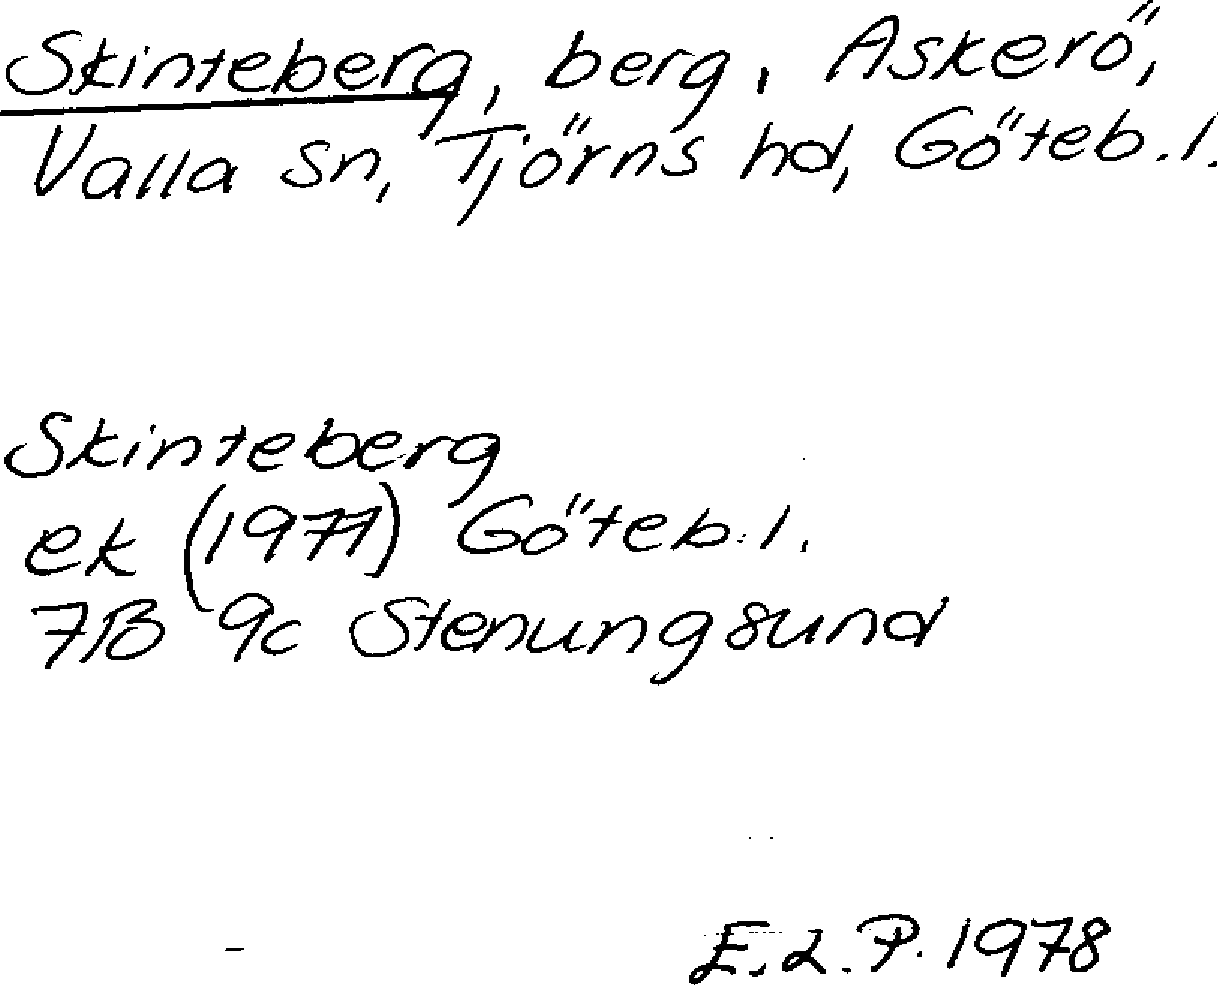 Skinteberg, berg, Askerö,
Valla sn, Tjörns hd, Göteb.l.
Skinteberg
ek (1977) Göteb.l.
7B 9c Stenungsund
E.L.P. 1978